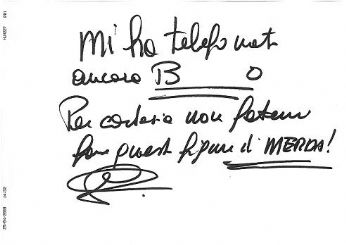 Mi ha telefonato
ancora B O
Per cortesia non fatemi
fare queste figure di MERDA!